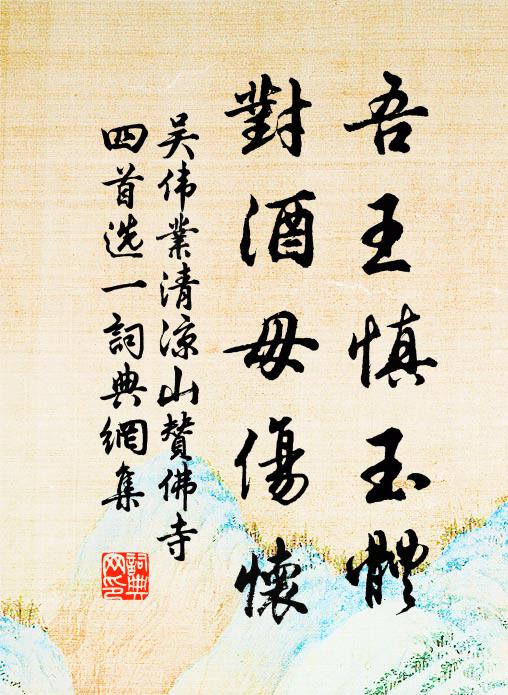 吾王慎玉體
對酒毋傷懷
吴伟業清涼山贊佛寺
四首选一詞典網集
詞典
网印